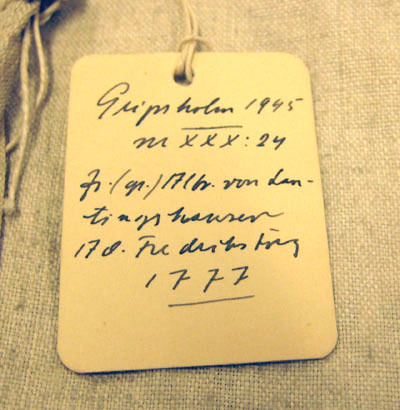 Gripsholm 1945
nr XXX:24
fr. (gr.) Albr. von Lan-
tingshausen
Fredrikstorg
1777